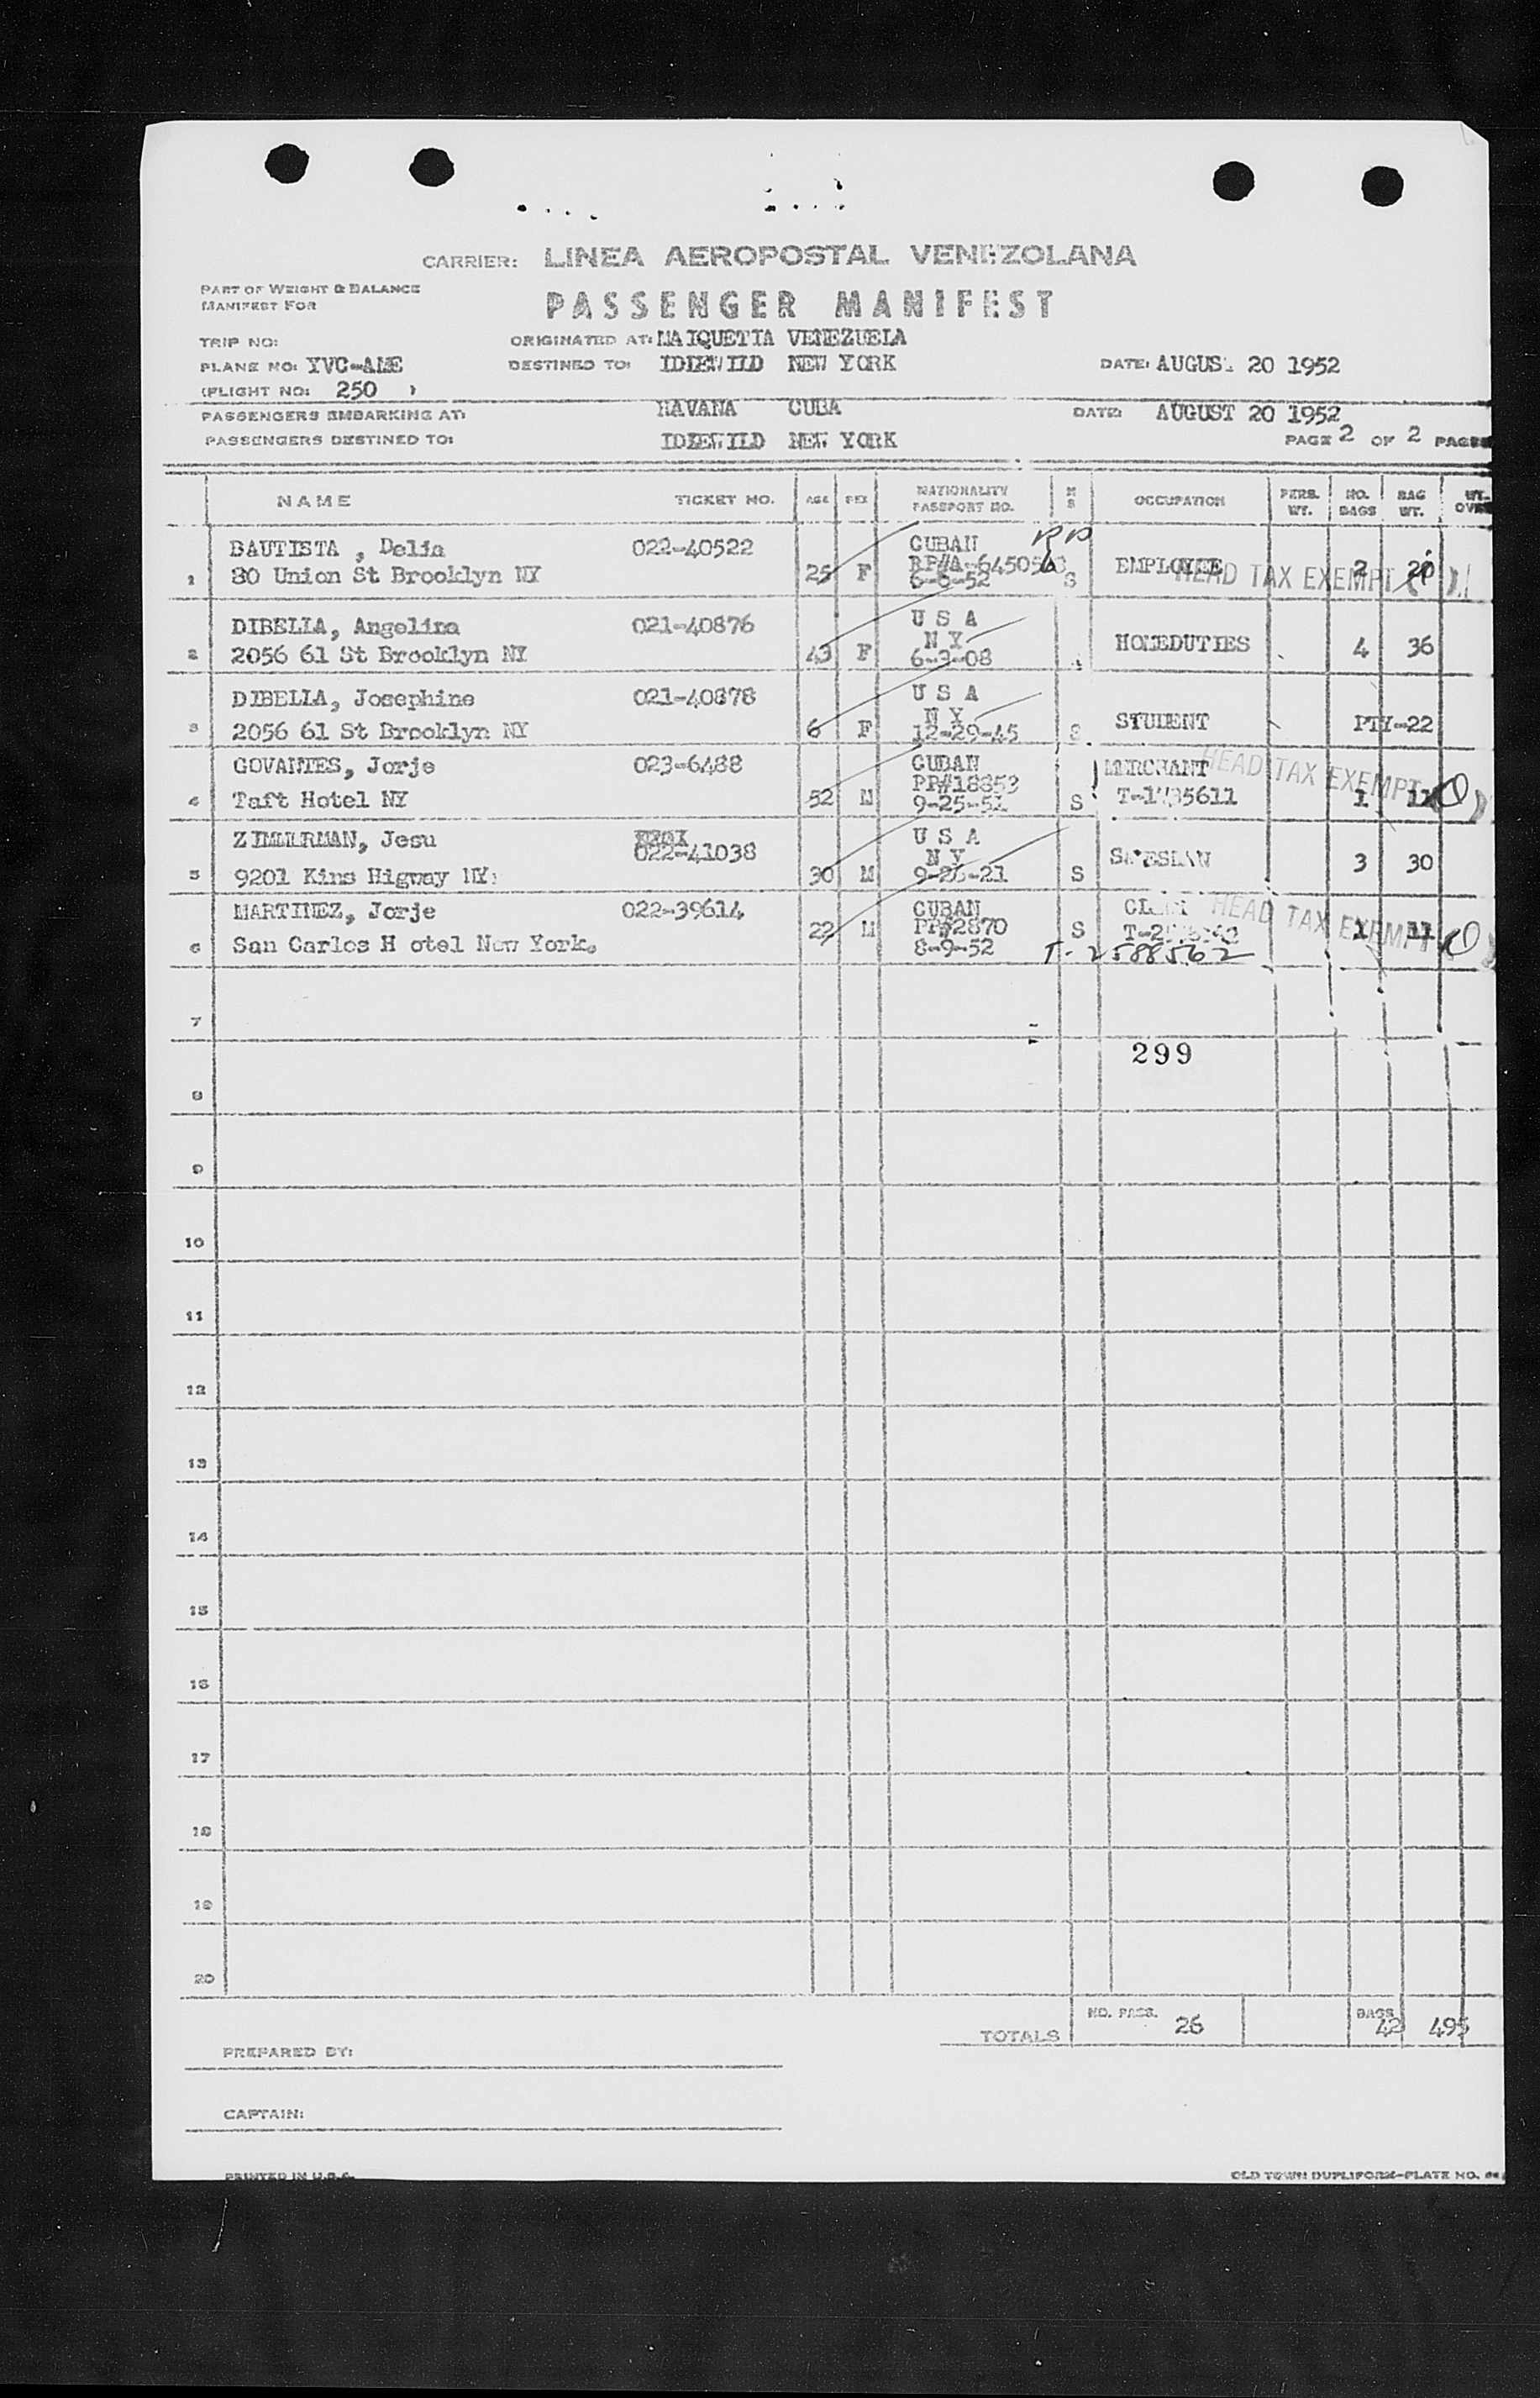 CARRIER: LINEA AEROPOSTAL VENEZOLANA
PART OF WEIGHT & BALANCE
MANIFEST FOR
PASSENGER MANIFEST
TRIP NO:
ORIGINATED AT: MAIQUETIA VENEZUELA
PLANE NO: YVC-AME
DESTINED TO: IDLEWILD NEW YORK
DATE: AUGUST 20 1952
(FLIGHT NO: 250 )
PASSENGERS EMBARKING AT: HAVANA CUBA
DATE: AUGUST 20 1952
PASSENGERS DESTINED TO: IDLEWILD NEW YORK
PAGE 2 OF 2 PAGES
NAME TICKET NO. AGE SEX NATIONALITY PASSPORT NO. M S OCCUPATION PERS. WT. NO. BAGS BAG WT. WT. OVER
BAUTISTA , Delia 022-40522 CUBAN
1 80 Union St Brooklyn NY 25 F S EMPLOYEE 2 20
6-6-52
HEAD TAX EXEMPT
DIBELLA, Angelina 021-40876 U S A
2 2056 61 St Brooklyn NY 43 F N Y HOMEDUTIES 4 36
6-3-08
DIBELLA, Josephine 021-40878 U S A
3 2056 61 St Brooklyn NY 6 F N Y S STUDENT PTY-22
12-29-45
GOVANTES, Jorje 023-6488 CUBAN MERCHANT
PP#18853
4 Taft Hotel NY 52 M 9-25-51 S 1 11
HEAD TAX EXEMPT
ZIMMERMAN, Jesu 022-41038 U S A
N Y
5 9201 Kins Higway NY 30 M S 3 30
MARTINEZ, Jorje 022-39614 CUBAN
PP#2870
6 San Carlos H otel New York. 22 M 8-9-52 S 1 11
HEAD TAX EXEMPT
T-2588562
7
299
8
9
10
11
12
13
14
15
16
17
18
19
20
TOTALS NO. PASS. 26 BAGS 42 495
PREPARED BY:
CAPTAIN:
PRINTED IN U.S.A.
OLD TOWN DUPLIFORM-PLATE NO.